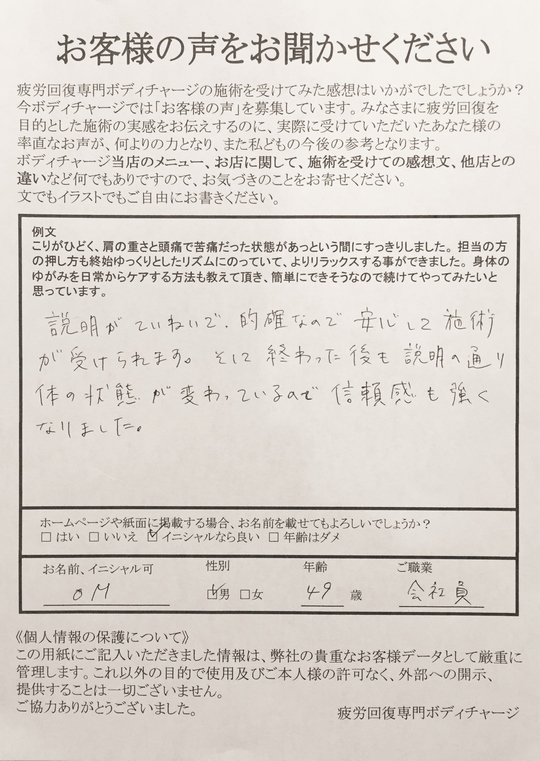 お客様の声をお聞かせください
疲労回復専門ボディチャージの施術を受けてみた感想はいかがでしたでしょうか?
今ボディチャージでは「お客様の声」を募集しています。みなさまに疲労回復を
目的とした施術の実感をお伝えするのに、実際に受けていただいたあなた様の
率直なお声が、何よりの力となり、また私どもの今後の参考となります。
ボディチャージ当店のメニュー、お店に関して、施術を受けての感想文、他店との
違いなど何でもありですので、お気づきのことをお寄せください。
文でもイラストでもご自由にお書きください。
例文
こりがひどく、肩の重さと頭痛で苦痛だった状態があっという間にすっきりしました。担当の方
の押し方も終始ゆっくりとしたリズムにのっていて、よりリラックスする事ができました。身体の
ゆがみを日常からケアする方法も教えて頂き、簡単にできそうなので続けてやってみたいと
思っています。
説明がていねいで、的確なので安心して施術
が受けられます。そして終わった後も説明の通り
体の状態が変わっているので信頼感も強く
なりました。
ホームページや紙面に掲載する場合、お名前を載せてもよろしいでしょうか?
□ はい □ いいえ ☑ イニシャルなら良い □ 年齢はダメ
お名前、イニシャル可 性別 年齢 ご職業
OM ☑男 □女 49 歳 会社員
《個人情報の保護について》
この用紙にご記入いただきました情報は、弊社の貴重なお客様データとして厳重に
管理します。これ以外の目的で使用及びご本人様の許可なく、外部への開示、
提供することは一切ございません。
ご協力ありがとうございました。
疲労回復専門ボディチャージ